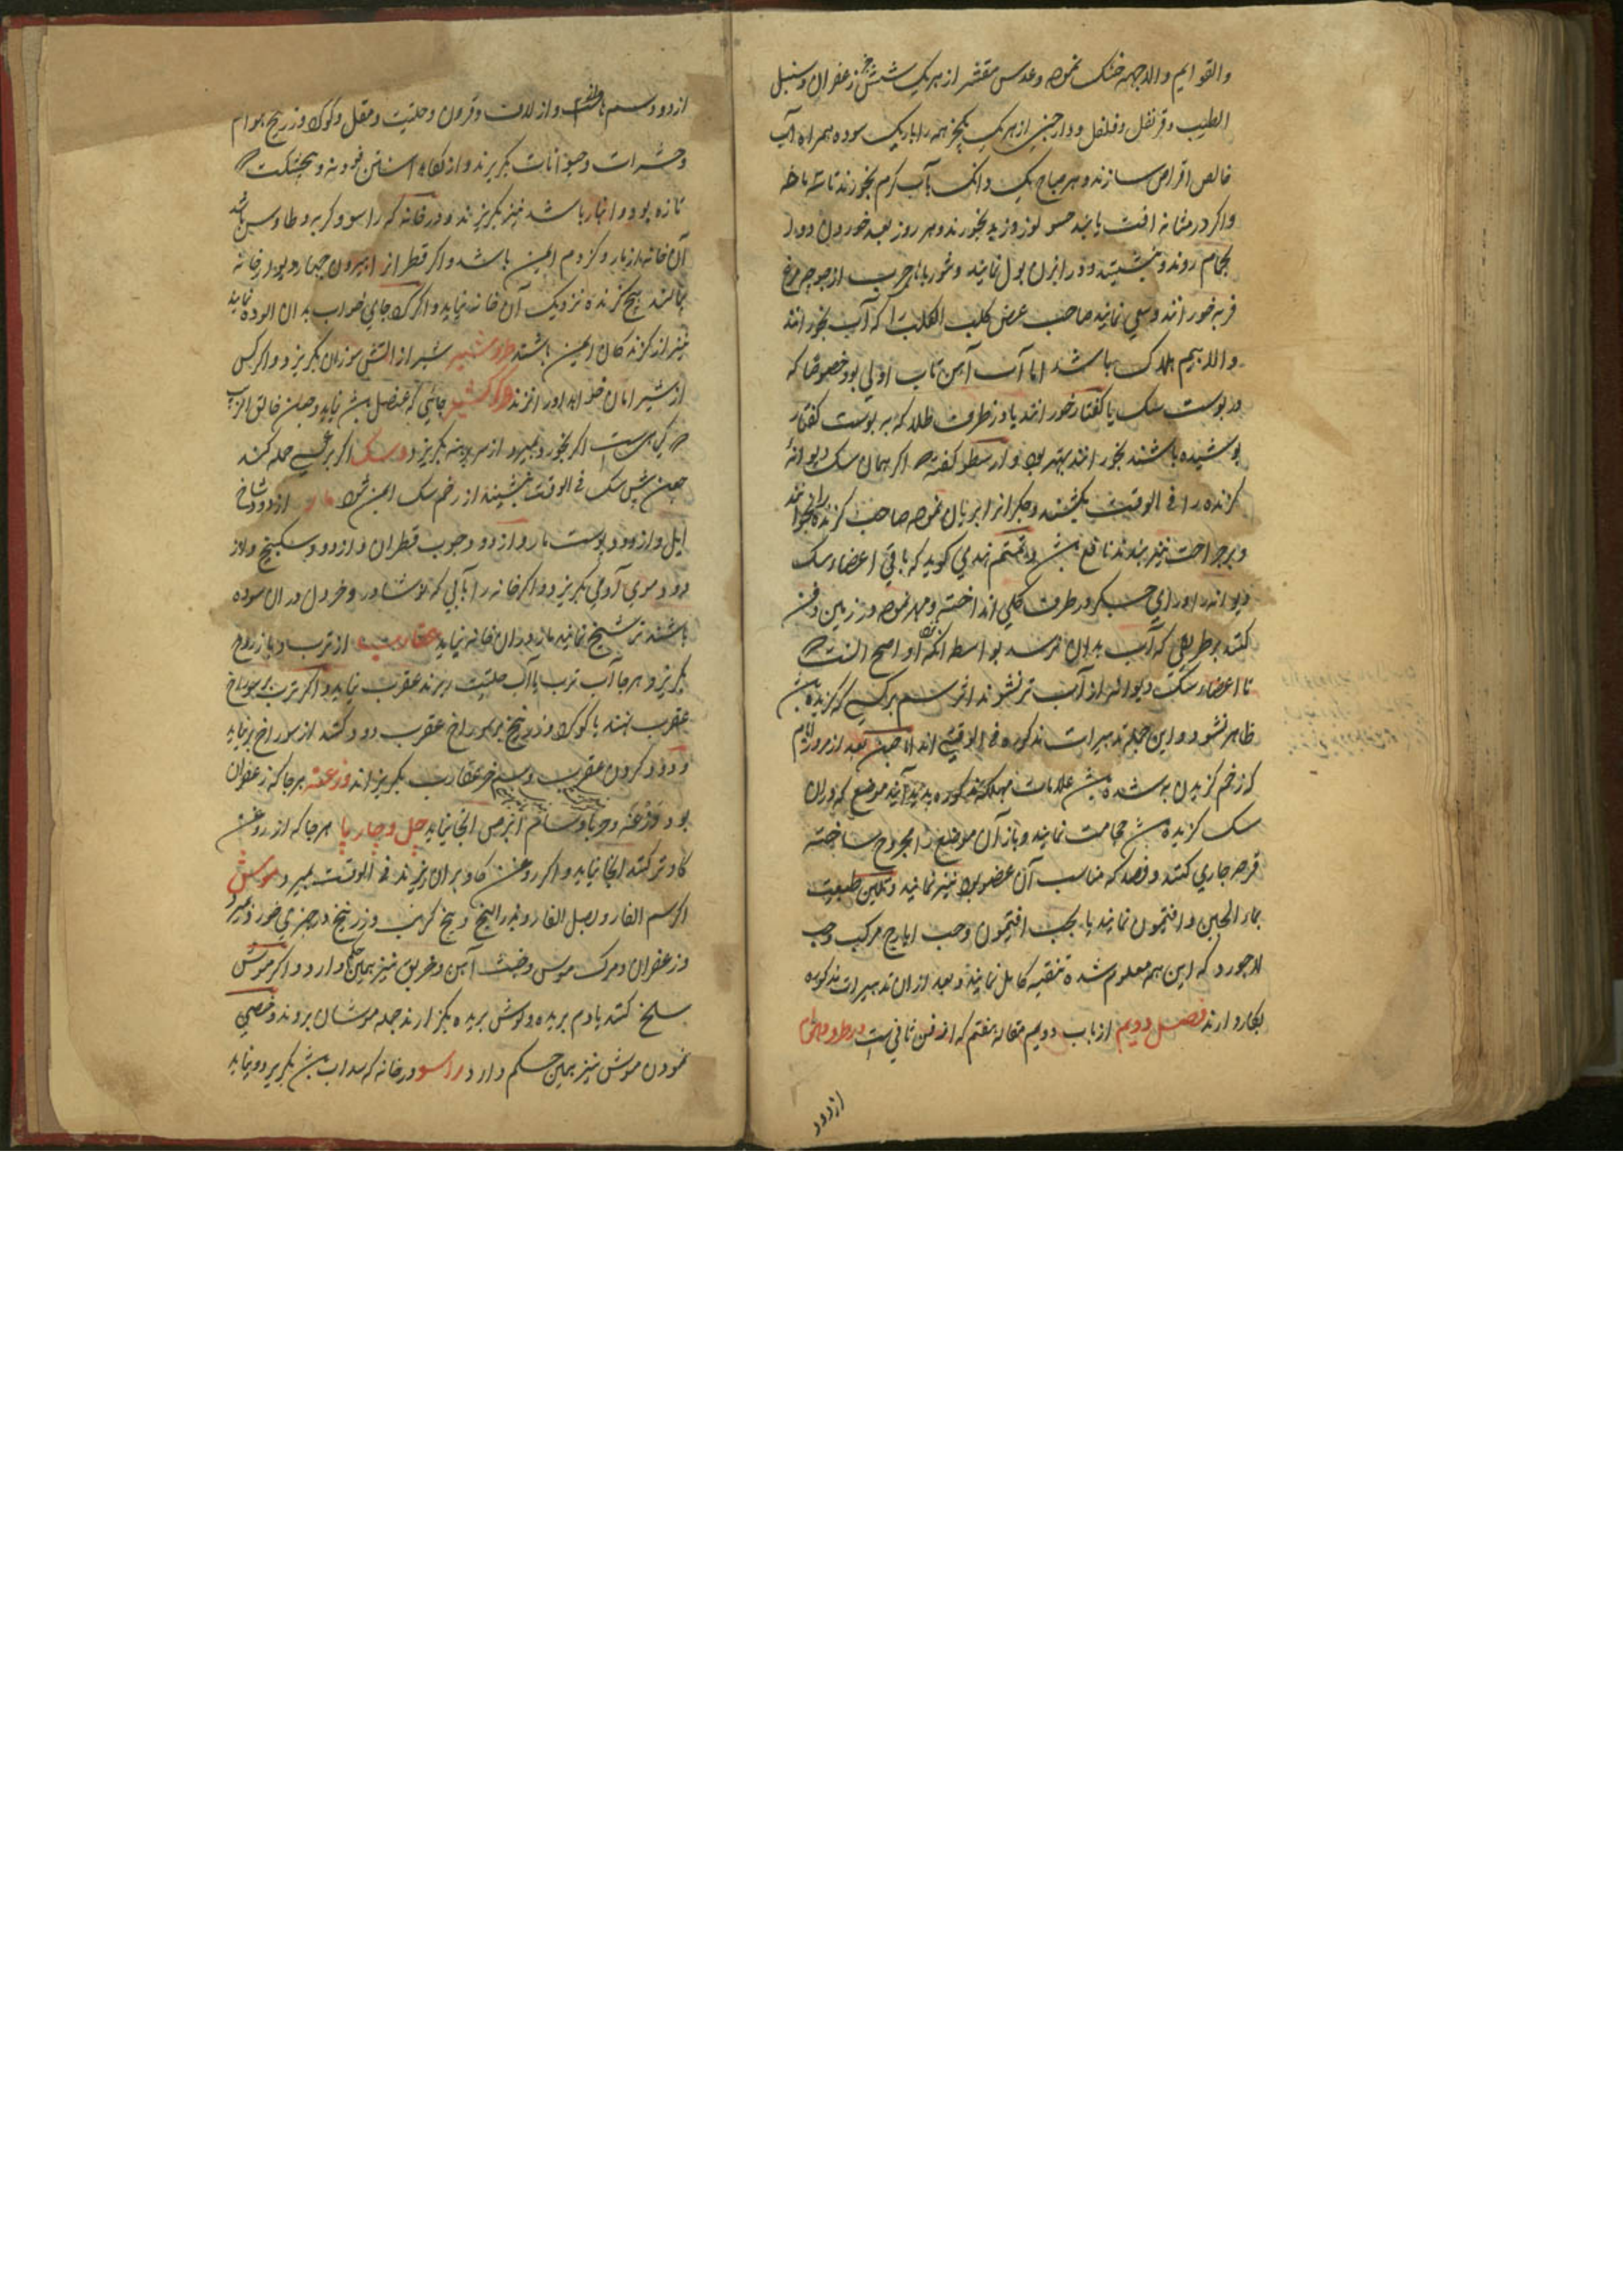 والقوایم والاجهه خنک نموده وعدس مقشر از هر یک شش جز زعفران وسنبل
الطیب وقرنفل وفلفل ودارچینی از هر یک یکجز همه را باریک سوده همراه آب
خالص اقراص سازند وهر صباح یک دانک بآب کرم بخورند تا شفا یابد
واکر در مثانه افت یابند حسو لوز وزبد بخورند وهر روز بعد خوردن دوا
بحمام روند وبنشینند ودر ابزن بول نمایند وشوربا چرب از جوجه مرغ
فربه خورانند وسعی نمایند صاحب عض کلب الکلب را که آب بخورانند
والا بیم هلاک باشد اما آب آهن تاب اولی بود خصوصا که
در پوست سک یا کفتار خورانند یا در ظرف طلا که بر پوست کفتار
پوشیده باشند بخورانند بهتر بود وارسطو کفته که اکر همان سک دیوانه
کزنده را فی الوقت بکشند وجکر انرا بریان نموده صاحب کزیده را بخورانند
وبر جراحت نیز بندند نافع باشد وتمتم هندی کوید که باقی اعضاء سک
دیوانه را ورای جکر در ظرف کلی انداخته ومهر نموده در زمین دفن
کنند بر طریقی که آب بدان نرسد بواسطه آنکه او اصح است که
تا اعضاء سک دیوانه از آب تر نشوند اثر سم بر کسی که کزیده باشد
ظاهر نشود واین جمله تدبیرات مذکوره فی الوقتی اند اما چون بعد از مرور ایام
که زخم کزیدن به شده باشد علامات مهلکه مذکوره پدید آیند موضع که دران
سک کزیده باشد حجامت نمایند وباز آن موضع را مجروح ساخته
قرحه جاری کنند وفصد که مناسب آن عضو بود نیز نمایند وتلیین طبیعت
بماء الجبن وافتیمون نمایند یا بحب افتیمون وحب ایارج مرکب وحب
لاجورد که این همه معلوم شده تنقیه کامل نمایند وبعد ازان تدبیرات مذکوره
بکار دارند فصل دویم از باب دویم مقاله هفتم که از فن ثانی است در طرد هوام
از دود
از دود سم واز لادن وقرون وحلتیت ومقل وکوکرد وزرنیخ هوام
وحشرات وحیوانات بکریزند واز کیاه افسنتین وپودنه وپنجنکشت که
تازه بود وانبار باشد نیز بکریزند ودر خانه که راسو وکربه وطاوس باشد
آن خانه از مار وکزدم ایمن باشد واکر قطران از بیرون چهار دیوار خانه
بمالند هیچ کزنده نزدیک آن خانه نیاید واکر کرد جای خواب بدان الوده نمایند
نیز از کزندکان ایمن باشند طرد شیر شیر از اتش سوزان بکریزد واکر کسی
از شیر امان خواهد اورا کرک شیر جائی که عنصل باشد نیاید وچون خانق الذئب
که کیاهیست اکر بخورد بمیرد واز سر بکریزد وسک اکر بر کسی حمله کند
چون پیش سک فی الوقت بنشیند از زخم سک ایمن شود مار از دود شاخ
ایل واز دود پوست مار واز دود وچوب قطران واز دود سکبینج واز
دود موی آدمی بکریزد واکر خانه را بآبی که نوشادر وخردل دران سوده
باشند ترشیح نمایند مار دران خانه نیاید عقارب از ترب وبادروج
بکریزد وهر جا آب ترب یا آب حلتیت ریزند عقرب نیاید واکر ترب بر سوراخ
عقرب نهند یا کوکرد وزرنیخ بر سوراخ عقرب دود کنند از سوراخ بر نیاید
ودود کردن عقرب وسم خر عقارب بکریزاند وزغه هر جا که زعفران
بود وزغه وحربا وسام ابرص انجا نیاید چل وچار پا هر جا که از روغن
کاو تر کنند انجا نیاید واکر روغن کاو بران ریزند فی الوقت بمیرد موش
اکر سم الفار وبصل الفار وبذر البنج وبیخ کرنب وزرنیخ در چیزی خورد بمیرد
وزعفران ومرک موش وخبث آهن وخربق نیز همین حکم دارد واکر موش
سلخ کنند یا دم بریده وکوش بریده بکزارند جمله موشان بروند وخصی
نمودن موش نیز همین حکم دارد راسو در خانه که سداب باشد بکریزد ونیاید